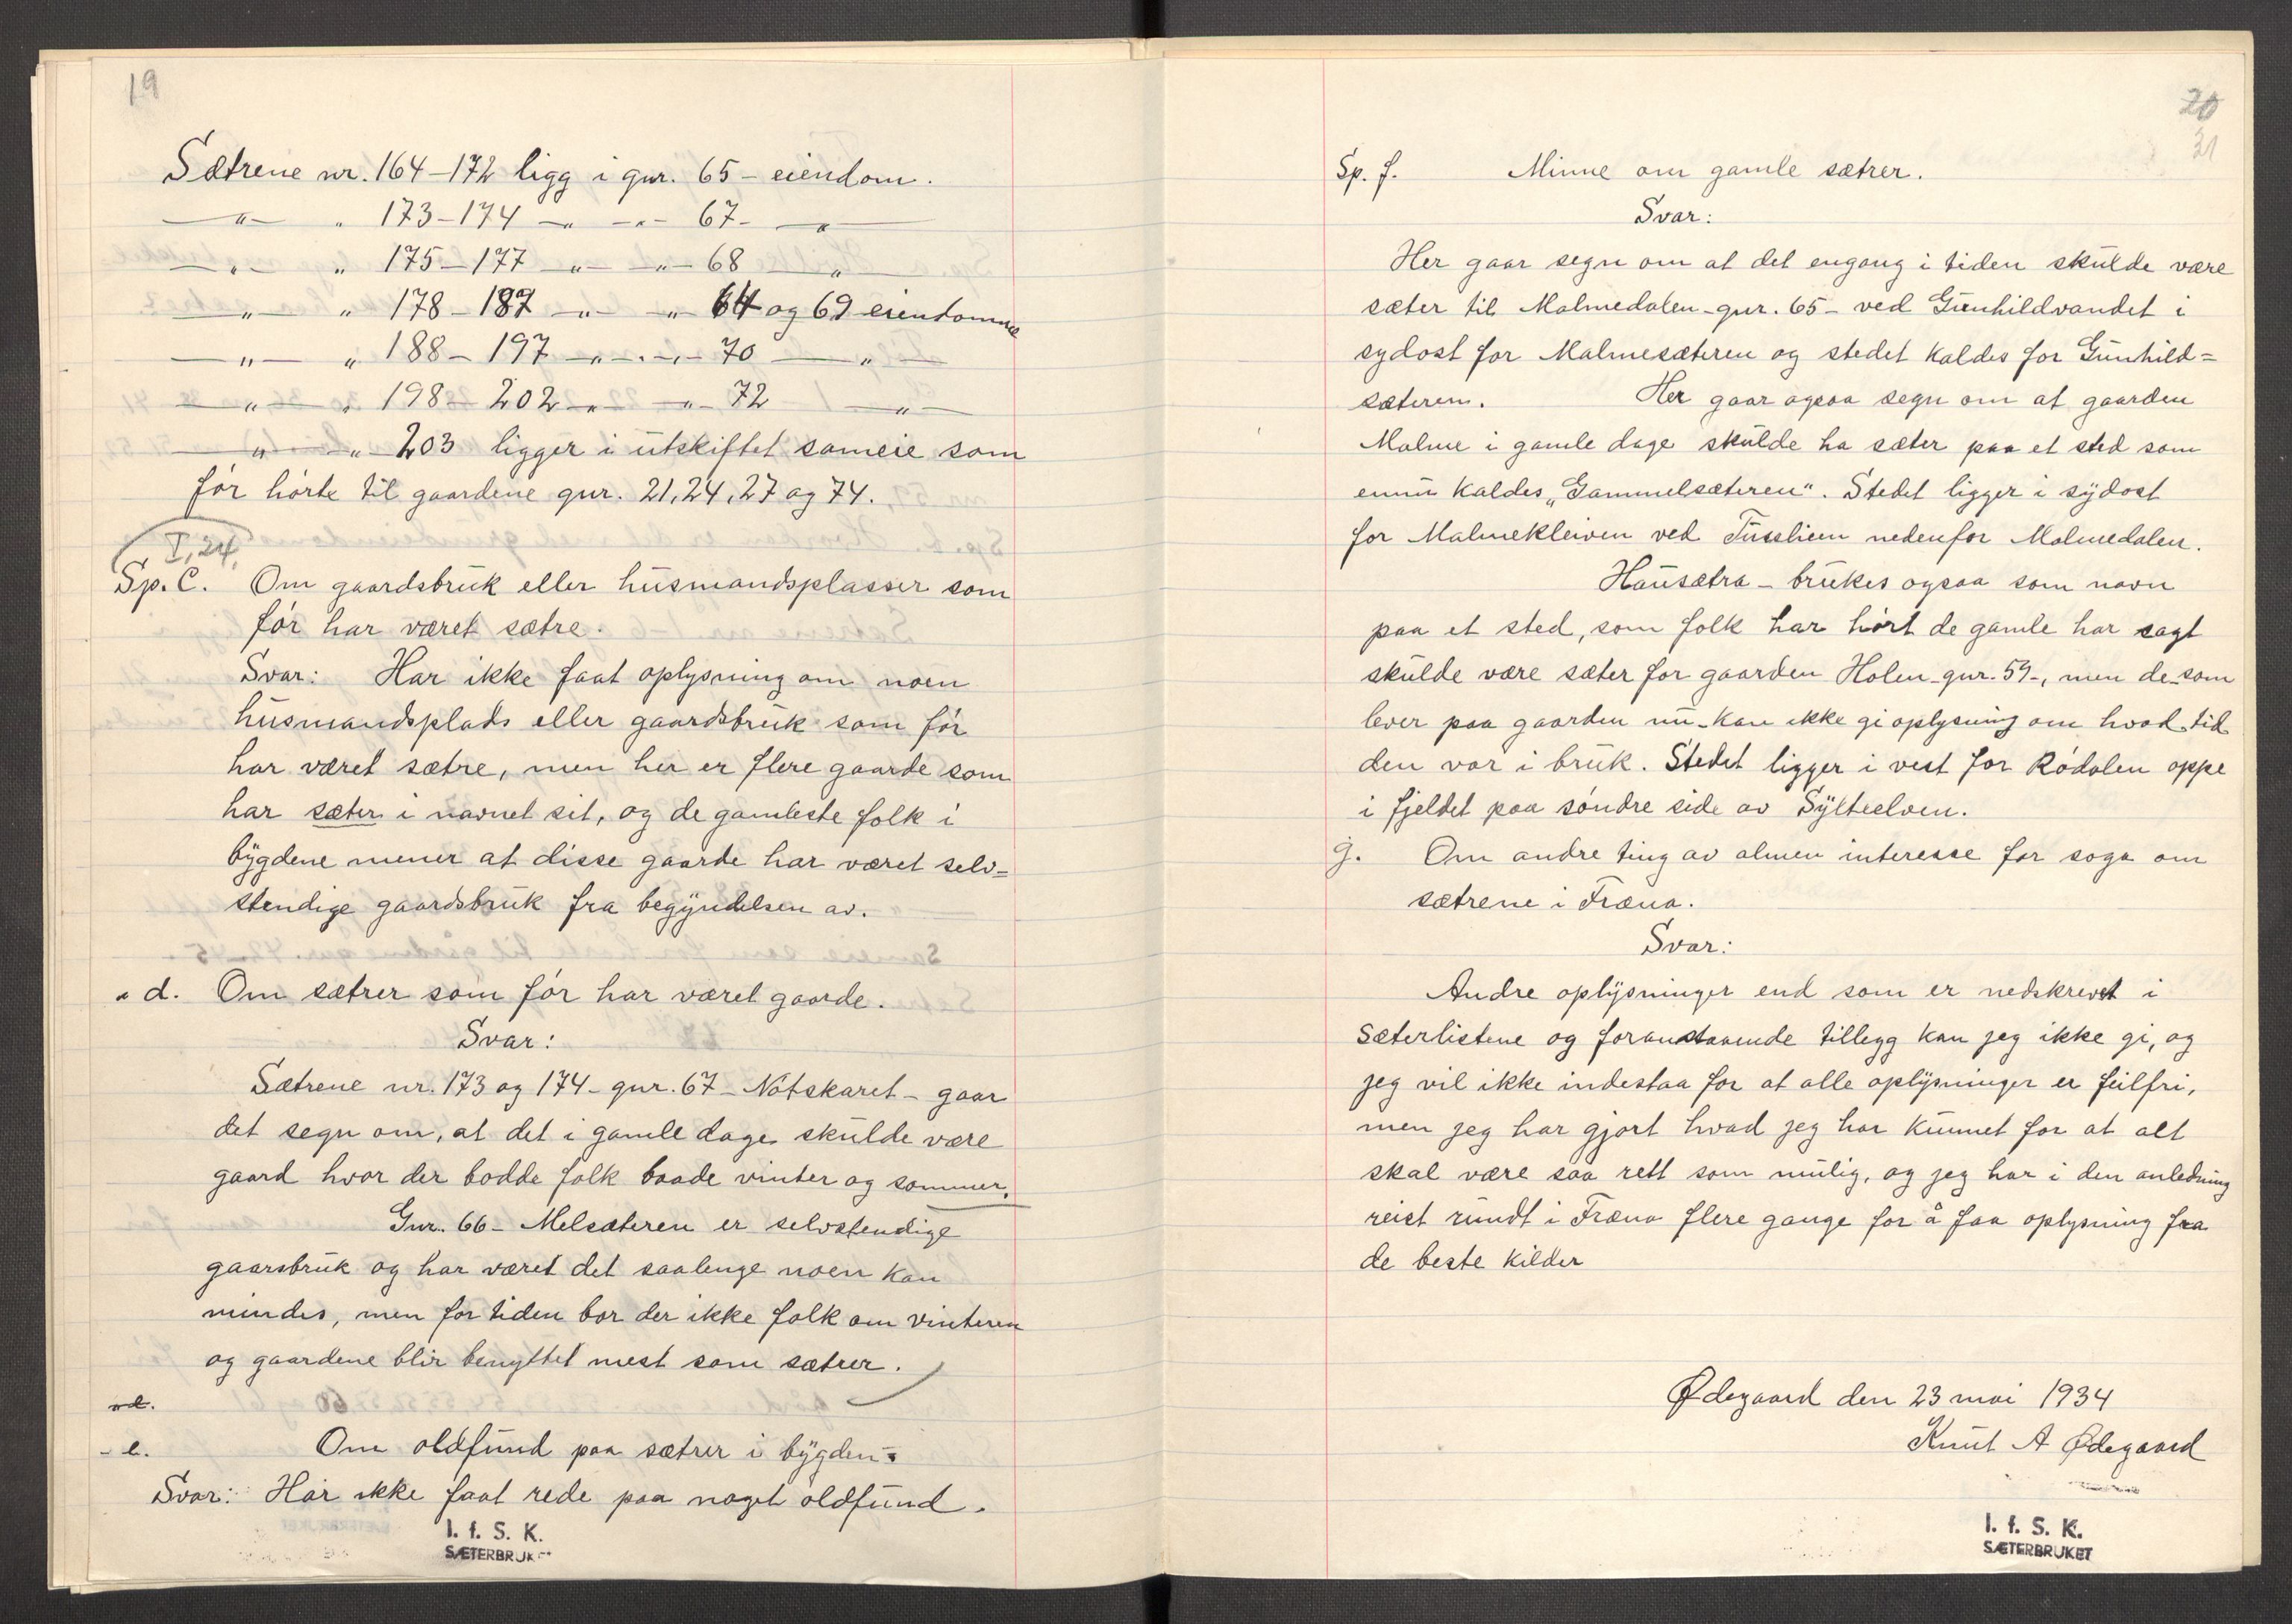 19
Sætrene nr. 164-172 ligg i gnr. 65 - eiendom.
—"— " 173-174 —" —"— 67- —"—
—"— " 175-177 —"— —"— 68 —"—
—"— " 178-187 —"— —"— 64 og 69 eiendomme
—"— " 188-197 —"— —"— 70 —"—
—"— " 198-202 —"— —"— 72 —"—
—"— " 203 ligger i utskiftet sameie som
før hørte til gaardene gnr. 21, 24, 27 og 74.
I, 24,
Sp. C. Om gaardsbruk eller husmandsplasser som
før har været sætre.
Svar: Har ikke faat oplysning om noen
husmandsplads eller gaardsbruk som før
har været sætre, men her er flere gaarde som
har sæter i navnet sit, og de gamleste folk i
bygdene mener at disse gaarde har været selv=
stendige gaardsbruk fra begyndelsen av.
" d. Om sætrer som før har været gaarde.
Svar:
Sætrene nr. 173 og 174 - gnr. 67 - Nøtskaret - gaar
det segn om, at det i gamle dage skulde være
gaard hvor der bodde folk baade vinter og sommer.
Gnr. 66 - Melsæteren er selvstendige
gaarsbruk og har været det saalenge noen kan
mindes, men for tiden bor der ikke folk om vinteren
og gaardene blir benyttet mest som sætrer.
- e. Om oldfund paa sætrer i bygden=
Svar: Har ikke faat rede paa noget oldfund.
I. f. S. K.
SÆTERBRUKET
20
21
Sp. f. Minne om gamle sætrer.
Svar:
Her gaar segn om at det engang i tiden skulde være
sæter til Malmedalen - gnr. 65 - ved Gunhildvandet i
sydost for Malmesæteren og stedet kaldes for Gunhild=
sæteren. Her gaar ogsaa segn om at gaarden
Malme i gamle dage skulde ha sæter paa et sted som
ennu kaldes „Gammelsæteren". Stedet ligger i sydost
for Malmekleiven ved Tusslien nedenfor Malmedalen.
Hausætra - brukes ogsaa som navn
paa et sted, som folk har hørt de gamle har sagt
skulde være sæter for gaarden Holen - gnr. 59 -, men de som
lever paa gaarden nu - kan ikke gi oplysning om hvad tid
den var i bruk. Stedet ligger i vest for Rødalen oppe
i fjeldet paa søndre side av Sylteelven.
g. Om andre ting av almen interesse for soga om
sætrene i Fræna.
Svar:
Andre oplysninger end som er nedskrevet i
Sæterlistene og foranstaaende tillegg kan jeg ikke gi, og
jeg vil ikke indestaa for at alle oplysninger er feilfri,
men jeg har gjort hvad jeg har kunnet for at alt
skal være saa rett som mulig, og jeg har i den anledning
reist rundt i Fræna flere gange for å faa oplysning fra
de beste kilder
Ødegaard den 23 mai 1934
Knut A Ødegaard
I. f. S. K.
SÆTERBRUKET